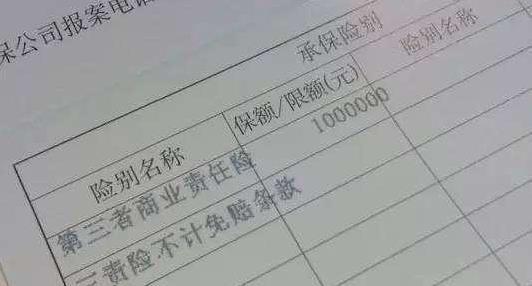 保公司报案电话
承保险别
险别名称 保额/限额(元) 险别名称
第三者商业责任险 1000000
三责险不计免赔条款